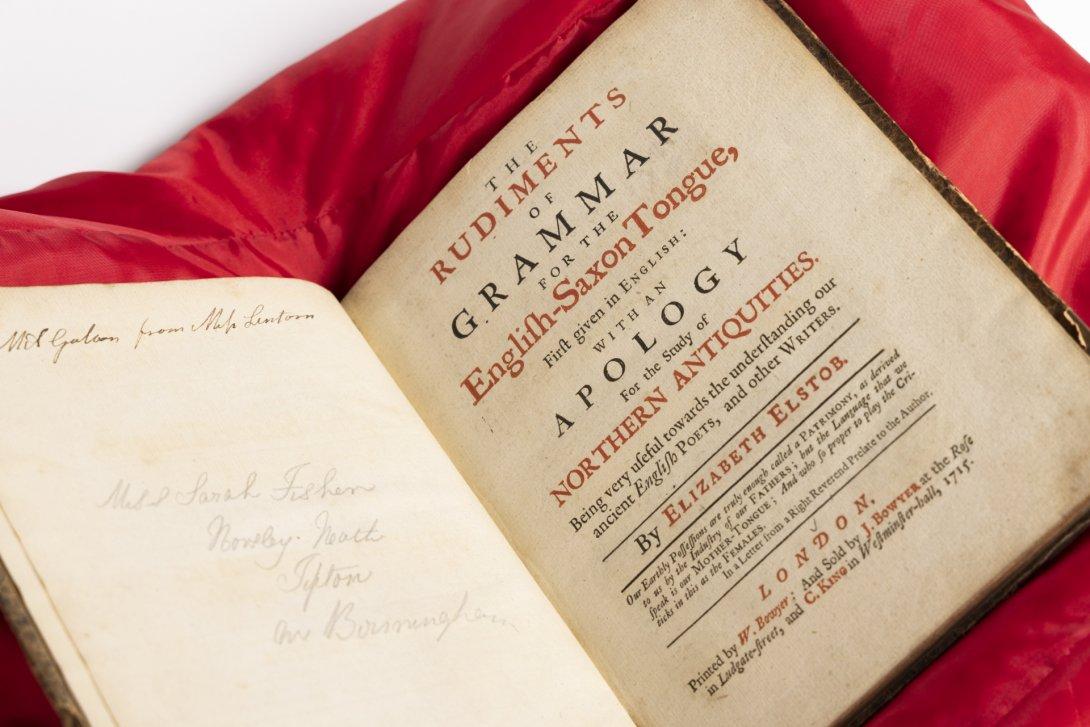 Miss Galton from Miss Lintorn
Miss Sarah Fisher
Heath
Tipton
Birmingham
THE
RUDIMENTS
OF
GRAMMAR
FOR THE
Engliſh-Saxon Tongue,
Firſt given in ENGLISH:
WITH AN
APOLOGY
For the Study of
NORTHERN ANTIQUITIES.
Being very uſeful towards the underſtanding our
ancient Engliſh POETS, and other WRITERS.
By ELIZABETH ELSTOB.
Our Earthly Poſſeſſions are truly enough called a PATRIMONY, as derived
to us by the Induſtry of our FATHERS; but the Language that we
ſpeak is our MOTHER-TONGUE; And who ſo proper to play the Cri-
ticks in this as the FEMALES.
In a Letter from a Right Reverend Prelate to the Author.
LONDON,
Printed by W. Bowyer: And Sold by J. BOWYER at the Roſe
in Ludgate-ſtreet, and C. KING in Weſtminſter-hall, 1715.